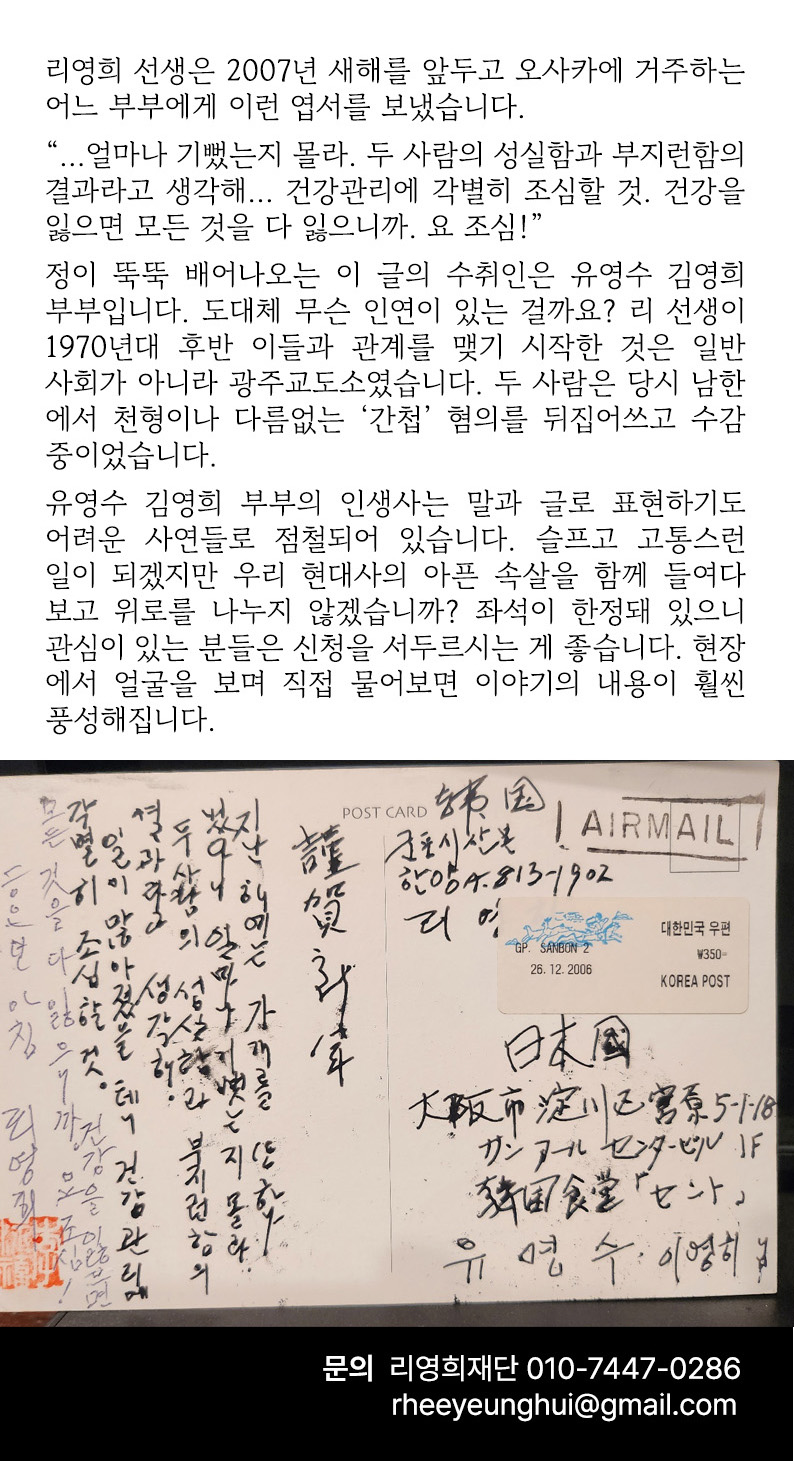 리영희 선생은 2007년 새해를 앞두고 오사카에 거주하는
어느 부부에게 이런 엽서를 보냈습니다.
“...얼마나 기뻤는지 몰라. 두 사람의 성실함과 부지런함의
결과라고 생각해... 건강관리에 각별히 조심할 것. 건강을
잃으면 모든 것을 다 잃으니까. 요 조심!”
정이 뚝뚝 배어나오는 이 글의 수취인은 유영수 김영희
부부입니다. 도대체 무슨 인연이 있는 걸까요? 리 선생이
1970년대 후반 이들과 관계를 맺기 시작한 것은 일반
사회가 아니라 광주교도소였습니다. 두 사람은 당시 남한
에서 천형이나 다름없는 ‘간첩’ 혐의를 뒤집어쓰고 수감
중이었습니다.
유영수 김영희 부부의 인생사는 말과 글로 표현하기도
어려운 사연들로 점철되어 있습니다. 슬프고 고통스런
일이 되겠지만 우리 현대사의 아픈 속살을 함께 들여다
보고 위로를 나누지 않겠습니까? 좌석이 한정돼 있으니
관심이 있는 분들은 신청을 서두르시는 게 좋습니다. 현장
에서 얼굴을 보며 직접 물어보면 이야기의 내용이 훨씬
풍성해집니다.
POST CARD
韩国
군포시 산본
한양A. 813-1902
리 영
AIRMAIL
GP. SANBON 2
26. 12. 2006
대한민국 우편
₩350
KOREA POST
日本國
大阪市 淀川区 宮原 5-1-18
サンアール センタービル 1F
韓国食堂「セント」
유 영 수 · 이영희
謹賀新年
지난 해에는 가게를 또 하나
냈다니 얼마나 기뻤는지 몰라.
두 사람의 성실함과 부지런함의
결과라고 생각해.
일이 많아졌을 테니 건강관리에
각별히 조심할 것. 건강을 잃으면
모든 것을 다 잃으니까. 요 조심!
아침 리영희
문의 리영희재단 010-7447-0286
rheeyeunghui@gmail.com